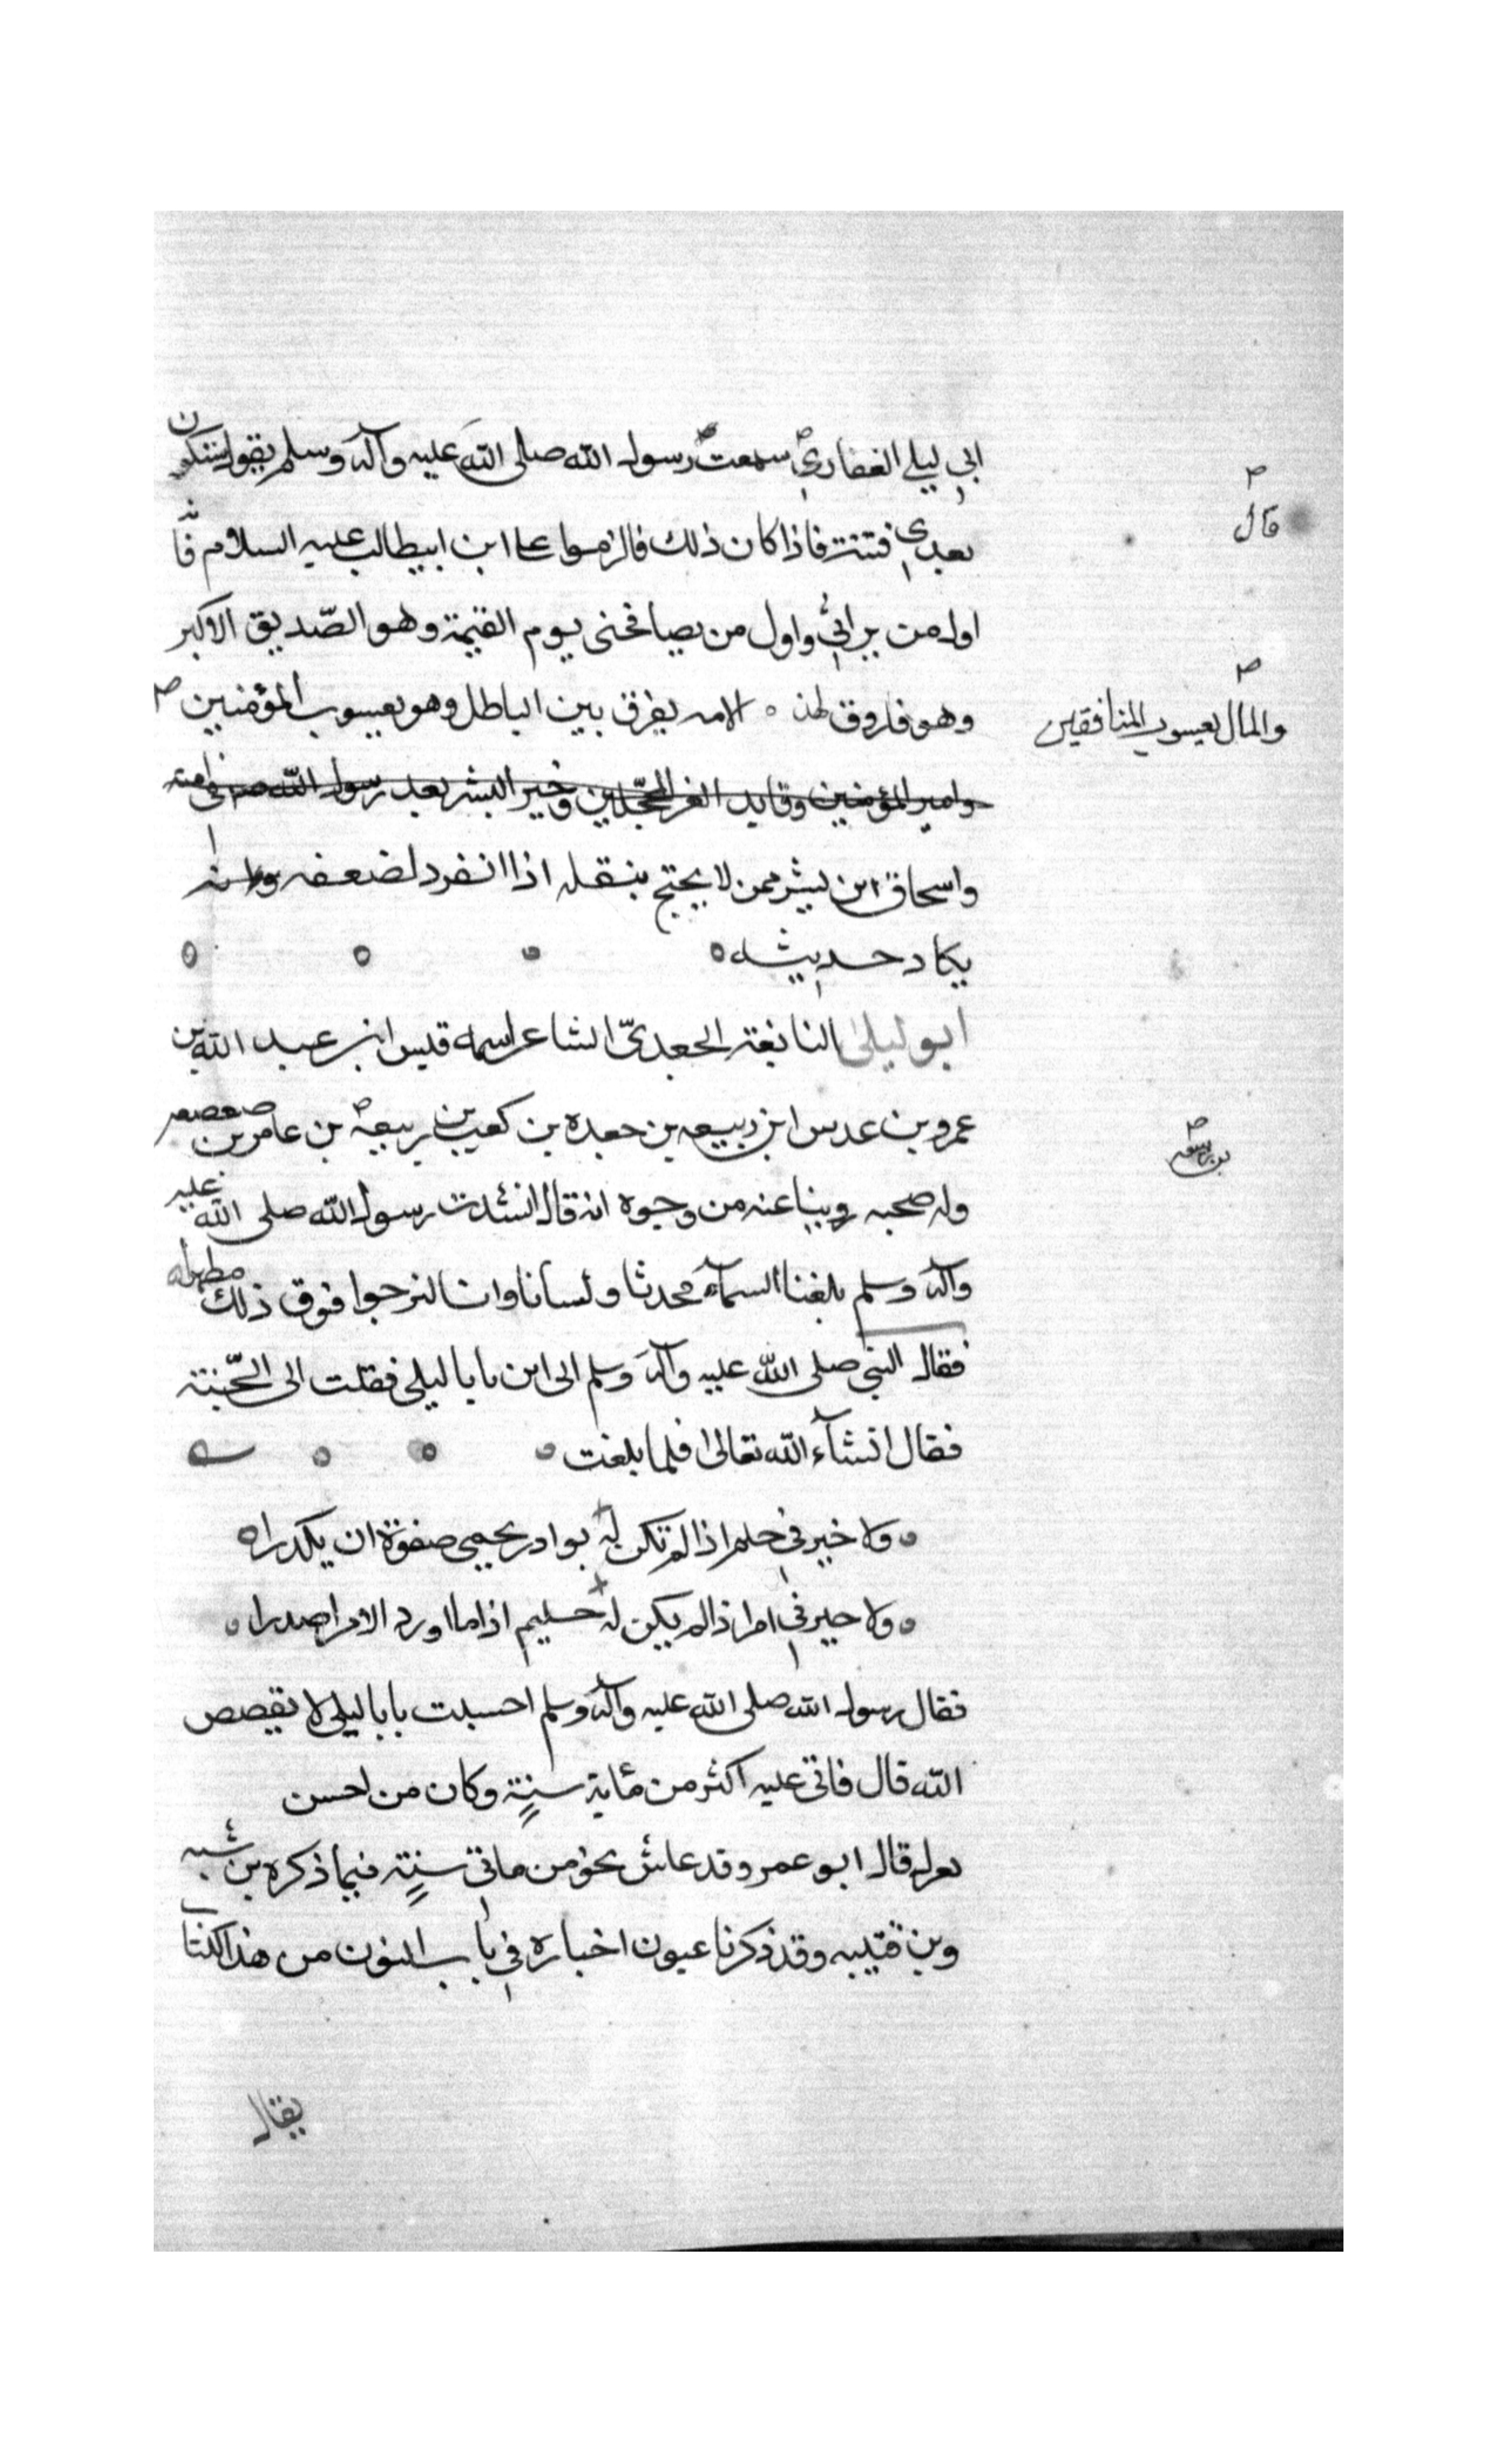 ابي ليلي الغفاري سمعت رسول الله صلى الله عليه وآله وسلم يقول ستكون
قال
بعدي فتنة فاذا كان ذلك فالزموا علي ابن ابيطالب عليه السلام فانه
اول من يراني واول من يصافحنى يوم القيمة وهو الصّديق الاكبر
وهو فاروق هذه الامه يفرق بين الباطل وهو يعسوب المؤمنين
والمال يعسوب المنافقين
وامير المؤمنين وقايد الغر المحجّلين وخير البشر بعد رسول الله
واسحاق ابن بشر ممن لا يحتج بنقله اذا انفرد لضعفه
يكاد حديثه
ابو ليلى النابغة الجعديّ الشاعر اسمه قيس ابن عبد الله بن
عمرو بن عدس ابن ربيعه بن جعده بن كعب بن ربيعة بن عامر بن صعصعه
بن ربيعه
وله صحبه روينا عنه من وجوه انه قال انشدت رسول الله صلى الله عليه
وآله وسلم بلغنا السمآء محدثا ولسانا وانا لنرجوا فوق ذلك مظهرا
فقال النبي صلى الله عليه وآله وسلم الى اين يابا ليلى فقلت الى الجّنة
فقال انشآء الله تعالى فلما بلغت
ولا خير في حلم اذا لم تكن له بوادر يحمي صفوة ان يكدرا
ولا خير في امر اذا لم يكن له حليم اذا ما اورد الامر اصدرا
فقال رسول الله صلى الله عليه وآله وسلم احسنت يابا ليلى لا يفصص
الله قال فاتى عليه اكثر من مئاية سنة وكان من احسن
قال ابو عمر وقد عاش نحو من ماتى سنة فيما ذكره بن شبه
وبن قتيبه وقد ذكرنا عيون اخباره في باب النون من هذا الكتاب
يقال